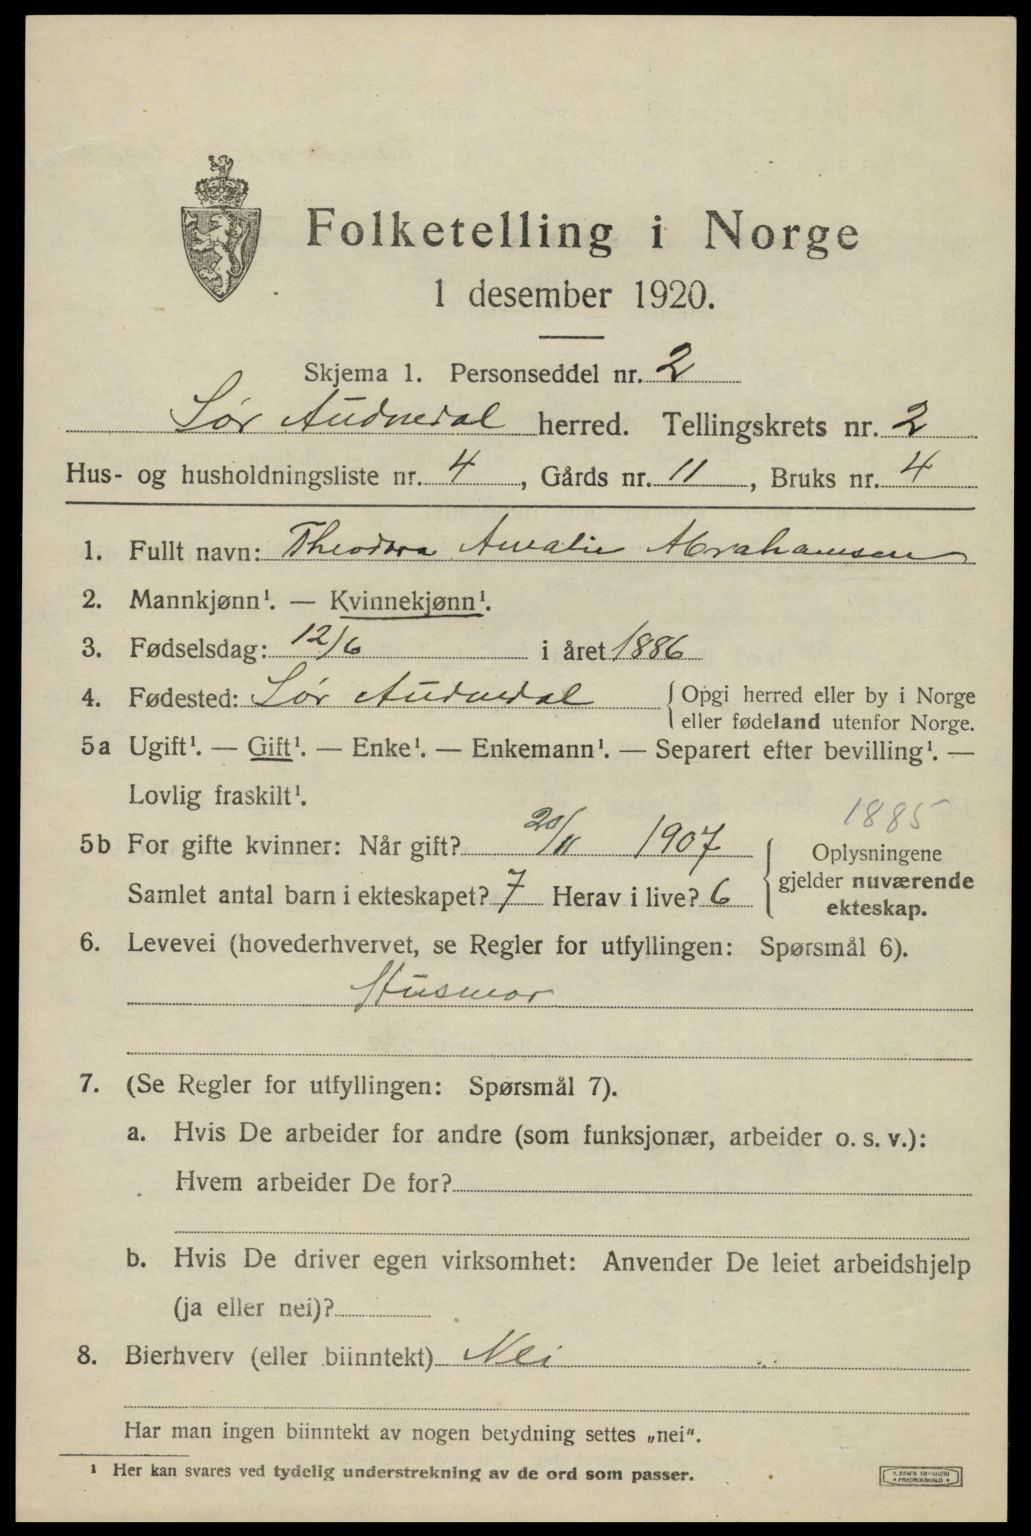 Folketelling i Norge
1 desember 1920.
Skjema 1. Personseddel nr. 2
Sør Audnedal herred. Tellingskrets nr. 2
Hus- og husholdningsliste nr. 4, Gårds nr. 11, Bruks nr. 4
1. Fullt navn: Theodora Amalie Abrahamsen
2. Mannkjønn¹. — Kvinnekjønn¹.
3. Fødselsdag: 12/6 i året 1886
4. Fødested: Sør Audnedal { Opgi herred eller by i Norge
eller fødeland utenfor Norge.
5a Ugift¹. — Gift¹. — Enke¹. — Enkemann¹. — Separert efter bevilling¹. —
Lovlig fraskilt¹.
1885
5b For gifte kvinner: Når gift? 20/11 1907
Samlet antal barn i ekteskapet? 7 Herav i live? 6
{ Oplysningene
gjelder nuværende
ekteskap.
6. Levevei (hovederhvervet, se Regler for utfyllingen: Spørsmål 6).
Husmor
7. (Se Regler for utfyllingen: Spørsmål 7).
a. Hvis De arbeider for andre (som funksjonær, arbeider o. s. v.):
Hvem arbeider De for?
b. Hvis De driver egen virksomhet: Anvender De leiet arbeidshjelp
(ja eller nei)?
8. Bierhverv (eller biinntekt) Nei
Har man ingen biinntekt av nogen betydning settes „nei".
¹ Her kan svares ved tydelig understrekning av de ord som passer.